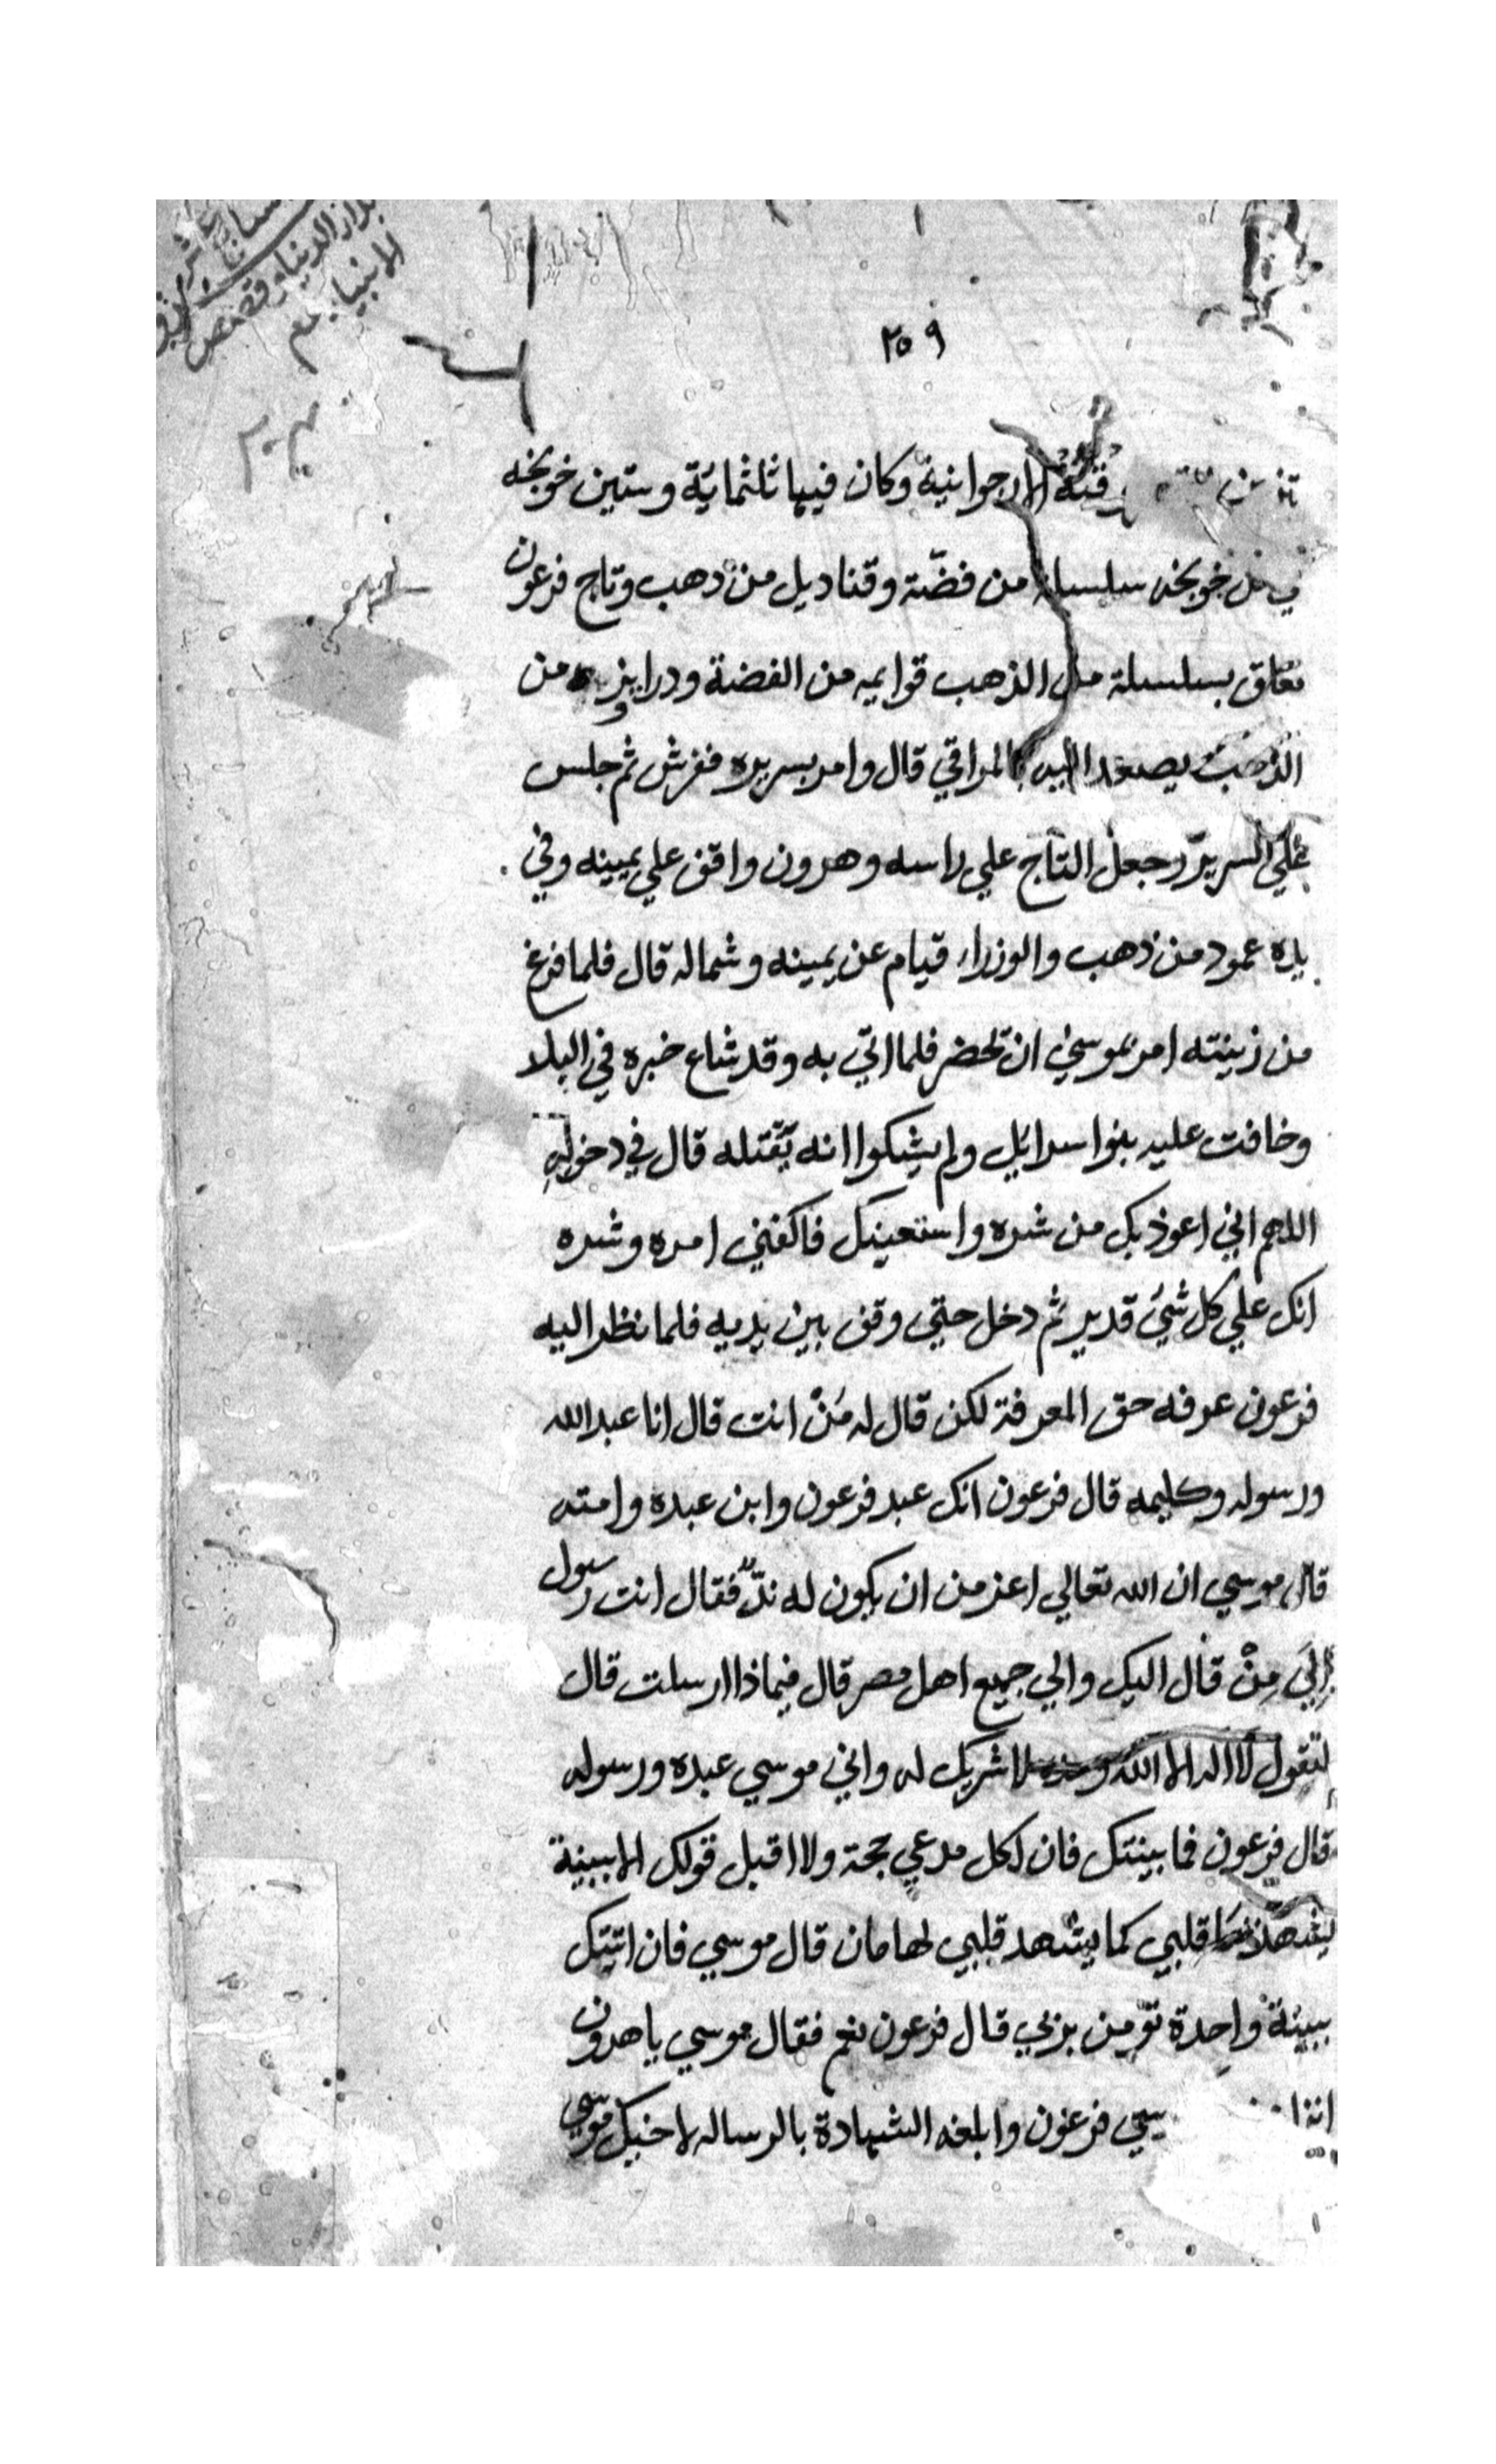 ٢٥٩
قبة الارجوانية وكان فيها ثلثمائة وستين خوخه
خوخه سلسلة من فضّة وقناديل من دهب وتاج فرعون
معلق بسلسلة من الذهب قوايمه من الفضة ودرابزينه من
الذهب يصعد اليه بالمراقي قال وامر بسريره ففرش ثم جلس
علي السرير وجعل التاج علي راسه وهرون واقف علي يمينه وفي
يده عمود من ذهب والوزراء قيام عن يمينه وشماله قال فلما فرغ
من زينته امر بموسي ان يحضر فلما اتي به وقد شاع خبره في البلد
وخافت عليه بنوا سرايل ولم يشكوا انه يقتله قال في دخوله
اللهم اني اعوذ بك من شره واستعينك فاكفني امره وشره
انك علي كل شيء قدير ثم دخل حتي وقف بين يديه فلما نظر اليه
فرعون عرفه حق المعرفة لكن قال له مَنْ انت قال انا عبد الله
ورسوله وكليمه قال فرعون انك عبد فرعون وابن عبده وامته
قال موسي ان الله تعالي اعز من ان يكون له ندّ فقال انت رسول
اليَ مِنْ قال اليك والي جميع اهل مصر قال فيماذا ارسلت قال
لتقول لا اله الا الله وحده لا شريك له واني موسي عبده ورسوله
قال فرعون فما بينتك فان لكل مدعي حجة ولا اقبل قولك الا ببينة
قلبي كما يشهد قلبي لهامان قال موسي فان اتيتك
ببينة واحدة تؤمن بربي قال فرعون نعم فقال موسي يا هرون
فرعون وابلغه الشهادة بالرساله لاخيك موسي
الدنيا وقصص
الانبيا